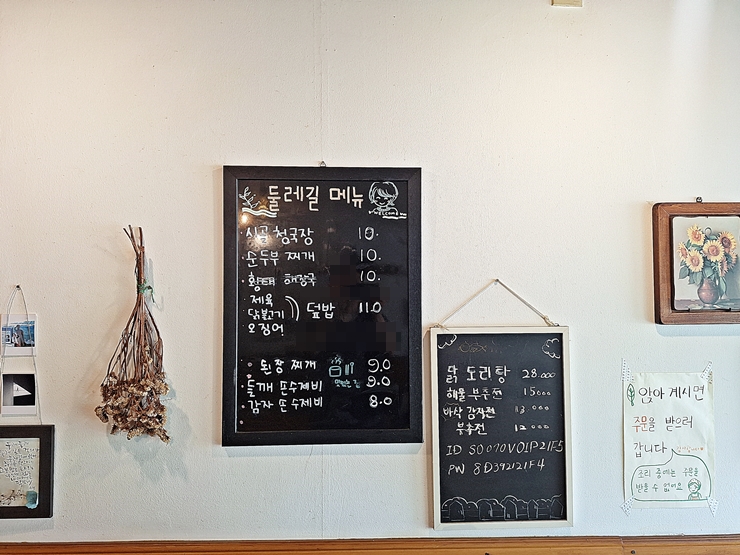 둘레길 메뉴
WELCOME
시골 청국장 10.
순두부 찌개 10.
황태 해장국 10.
제육
닭불고기 덮밥 11.0
오징어
된장 찌개 9.0
들깨 손수제비 9.0
감자 손수제비 8.0
닭 도리탕 28.000
해물 부추전 15000
바삭 감자전 13000
부추전 12000
ID SO070VOIP21F5
PW 8D392121F4
앉아 계시면
주문을 받으러
갑니다
조리 중에는 주문을
받을 수 없어요